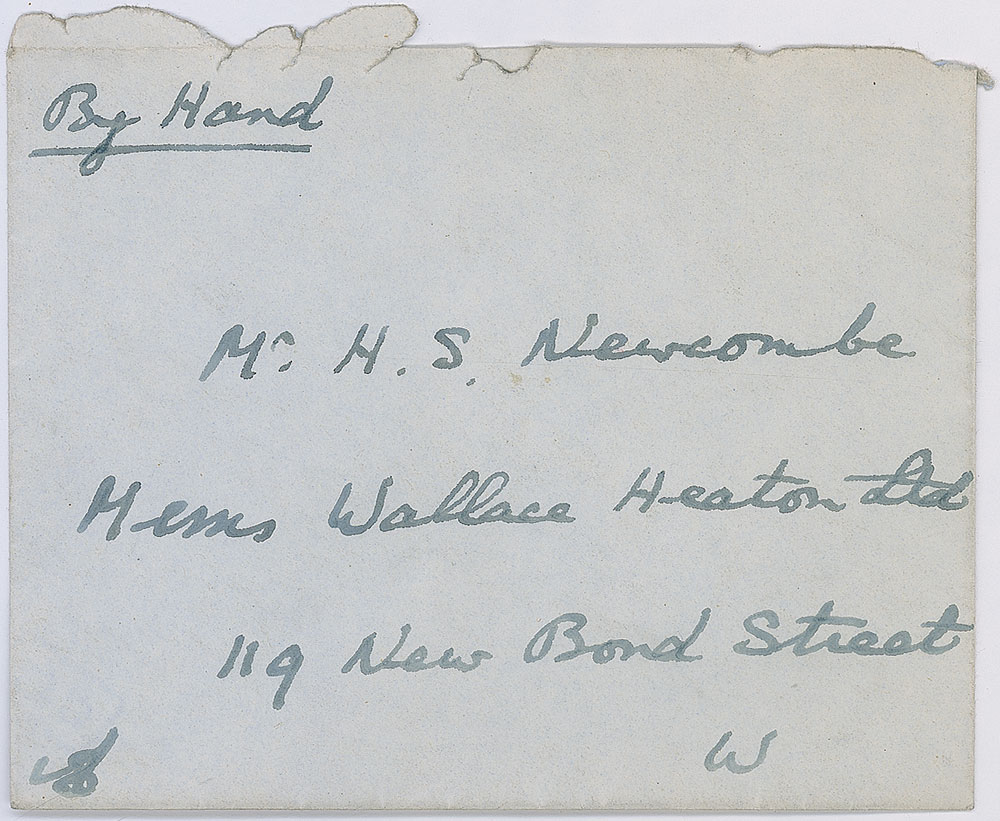 By Hand
Mr. H. S. Newcombe
Messrs Wallace Heaton Ltd
119 New Bond Street
W